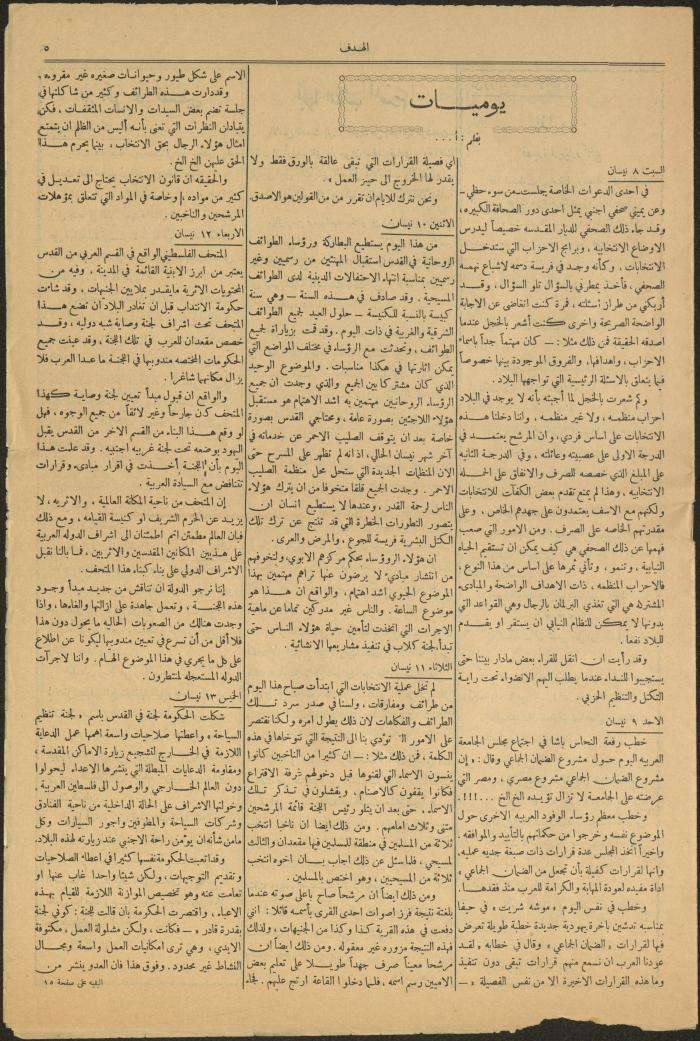 الهدف
٥
يوميات
بقلم : أ . . .
السبت ٨ نيسان
في احدى الدعوات الخاصة جلست ـ من سوء حظي ـ
وعن يميني صحفي اجنبي يمثل احدى دور الصحافة الكبيره،
وقد جاء ذلك الصحفي للديار المقدسه خصيصاً ليدرس
الاوضاع الانتخابيه ، وبرامج الاحزاب التي ستدخل
الانتخابات ، وكأنه وجد في فريسة دسمه لاشباع نهمه
الصحفي ، فأخذ يمطرني بالسؤال تلو السؤال ، وقد
أربكني من طراز أسئلته ، فمرة كنت انغاضى عن الاجابة
الواضحة الصريحة واخرى كنت أشعر بالخجل عندما
اصدقه الحقيقة فمن ذلك مثلا : ـ كان مهتماً جداً باسماء
الاحزاب ، واهدافها، والفروق الموجودة بينها خصوصاً
فيما يتعلق بالاسئلة الرئيسية التي تواجهها البلاد .
وكم شعرت بالخجل لما أجبته بأنه لا يوجد في البلاد
احزاب منظمه ، ولا غير منظمه ، واننا دخلنا هذه
الانتخابات على اساس فردي ، وان المرشح يعتمد في
الدرجة الاولى على عصبيته وعائلته ، وفي الدرجة الثانيه
على المبلغ الذي خصصه للصرف والانفاق على الحمله
الانتخابيه ، وهذا لم يمنع تقدم بعض الكفآت للانتخابات
ولكنهم مع الاسف يعتمدون على جهدهم الخاص ، وعلى
مقدرتهم الخاصه على الصرف . ومن الامور التي صعب
فهمها عن ذلك الصحفي هي كيف يمكن ان تستقيم الحياه
النيابية ، وتنمو ، وتأتي ثمرها على اساس من هذا النوع ،
فالاحزاب المنظمه ، ذات الاهداف الواضحة والمبادىء
المشتركة هي التي تغذي البرلمان بالرجال وهي القواعد التي
بدونها لا يمكن للنظام النيابي ان يستقر او يقدم
للبلاد نفعا .
وقد رأيت ان انقل للقراء بعض مادار بيننا حتى
يستجيبوا للنداء عندما يطلب اليهم الانضواء تحت راية
التكتل والتنظيم الحزبي .
الاحد ٩ نيسان
خطب رفعة النحاس باشا في اجتماع مجلس الجامعة
العربيه اليوم حول مشروع الضمان الجماعي وقال : « إن
مشروع الضمان الجماعي مشروع مصري ، ومصر التي
عرضته على الجامعة لا تزال تؤيده الخ الخ . . .!!!.
وخطب معظم رؤساء الوفود العربيه الاخرى حول
الموضوع نفسه وخرجوا من حكاتهم بالتأييد والموافقه .
واخيراً اتخذ المجلس عدة قرارات ذات صبغة جديه عمليه ،
وانها لقرارات كفيلة بأن تجعل من الضمان الجماعي «
اداة مفيده لعودة المهابة والكرامة للعرب منذ فقدها . !
وخطب في نفس اليوم « موشه شريت » في حيفا
بمناسبه تدشين باخرة يهودية جديدة خطبة طويلة تعرض
فيها لقرارات « الضمان الجماعي » وقال في خطابه « لقد
عودنا العرب ان نسمع منهم قرارات تبقى دون تنفيذ
وما هذه القرارات الاخيرة الا من نفس الفصيلة « ـ
اي فصيلة القرارات التي تبقى عالقة بالورق فقط ولا
يقدر لها الخروج الى حيز العمل » .
ونحن نترك للايام ان تقرر من من القولين هو الاصدق.
الاثنين ١٠ نيسان
من هذا اليوم يستطيع البطاركة ورؤساء الطوائف
الروحانية في القدس استقبال المهنئين من رسميين وغير
رسميين بمناسبة انتهاء الاحتفالات الدينية لدى الطوائف
المسيحية . وقد صادف في هذه السنة ـ وهي سنة
كبيسة بالنسبة للكنيسة ـ حلول العيد لجميع الطوائف
الشرقية والغربية في ذات اليوم . وقد قمت بزيارة لجميع
الطوائف ، وتحدثت مع الرؤساء في مختلف المواضع التي
يمكن اثارتها في هكذا مناسبات . والموضوع الوحيد
الذي كان مشتركا بين الجميع والذي وجدت ان جميع
الرؤساء الروحانيين مهتمين به اشد الاهتمام هو مستقبل
هؤلاء اللاجئين بصورة عامة ، ومحتاجي القدس بصورة
خاصة بعد ان يتوقف الصليب الاحمر عن خدماته في
آخر شهر نيسان الحالي ، اذ انه لم تظهر على المسرح حتى
الان المنظمات الجديدة التي ستحل محل منظمة الصليب
الاحمر . وجدت الجميع قلقا متخوفا من ان يترك هؤلاء
الناس لرحمة القدر ، وعندها لا يستطيع انسان ان
يتصور التطورات الخطرة التي قد تنتج عن ترك تلك
الكتل البشرية فريسة للجوع ، والمرض والعرى .
ان هؤلاء الروؤساء بحكم مركزهم الابوي ، ولتخوفهم
من انتشار مبادىء لا يرضون عنها تراهم مهتمين بهذا
الموضوع الحيوي اشد اهتمام ، والواقع ان هذا هو
موضوع الساعة . والناس غير مدركين تماما عن ماهية
الاجرات التي اتخذت لتأمين حياة هؤلاء الناس حتى
تبدأ لجنة كلاب في تنفيذ مشاريعها الانشائية .
الثلاثاء ١١ نيسان
لم تخل عملية الانتخابات التي ابتدأت صباح هذا اليوم
من طرائف ومفارقات ، ولسنا في صدر سرد تلك
الطرائف والفكاهات لان ذلك يطول امره ولكنا نقتصر
على الامور التي تؤدي بنا الى النتيجة التي نتوخاها في هذه
الكلمة ، فمن ذلك مثلا : ـ ان كثيرا من الناخبين كانوا
ينسون الاسماء التي لقنوها قبل دخولهم غرفة الاقتراع
فكانوا يقفون كالاصنام ، ويفشلون في تذكر تلك
الاسماء . حتى بعد ان يتلو رئيس اللجنة قائمة المرشحين
مثنى وثلاث امامهم . ومن ذلك ايضا ان ناخبا انتخب
ثلاثة من المسلمين في منطقة للمسلمين فيها مقعدان والثالث
لمسيحي ، فلما سئل عن ذلك اجاب بان اخوه انتخب
ثلاثة من المسيحيين ، وهو اختص بالمسلمين .
ومن ذلك ايضاً ان مرشحاً صاح باعلى صوته عندما
بلغتة نتيجة فرز اصوات احدى القرى بأسمه قائلا : انني
دفعت في هذه القرية كذا وكذا من الجنيهات ، ولذلك
فهذه النتيجة مزوره غير معقوله . ومن ذلك ايضاً ان
مرشحا معيناً صرف جهداً طويلا على تعليم بعض
الاميين رسم اسمه ، فلما دخلوا القاعة ارتج عليهم . فجاء
الاسم على شكل طيور وحيوانات صغيره غير مقروءه .
وقد دارت هذه الطرائف وكثير من شاكلتها في
جلسة تضم بعض السيدات والانسات المثقفات ، فكن
يتبادلن النظرات التي تعني بأنه أليس من الظلم ان يتمتع
امثال هؤلاء الرجال بحق الانتخاب ، بينما يحرم هذا
الحق عليهن الخ الخ .
والحقيقه ان قانون الانتخاب يحتاج الى تعديل في
كثير من مواده ، وخاصة في المواد التي تتعلق بمؤهلات
المرشحين والناخبين .
الاربعاء ١٢ نيسان
المتحف الفلسطيني الواقع في القسم العربي من القدس
يعتبر من ابرز الابنية القائمة في المدينة ، وفيه من
المحتويات الاثرية ما يقدر بملايين الجنيهات ، وقد شاءت
حكومة الانتداب قبل ان تغادر البلاد ان تضع هذا
المتحف تحت اشراف لجنة وصاية شبه دوليه ، وقد
خصص مقعدان للعرب في تلك اللجنة ، وقد عينت جميع
الحكومات المختصه مندوبيها في اللجنة ما عدا العرب فلا
يزال مكانهما شاغرا .
والواقع ان قبول مبدأ تعيين لجنة وصاية كهذا
المتحف كان جارحاً وغير لائقاً من جميع الوجوه ، فهل
لو وقع هذا البناء من القسم الاخر من القدس يقبل
اليهود بوضعه تحت لجنة غربيه اجنبيه . وقد علمت هذا
اليوم بأن اللجنة أخذت في اقرار مبادىء وقرارات
تتنافض مع السيادة العربية .
إن المتحف من ناحية المكانة العالمية ، والاثريه ، لا
يزيد عن الحرم الشريف او كنيسة القيامه ، ومع ذلك
فبان العالم مطمئن اتم اطمئنان الى اشراف الدوله العربية
على هذين المكانين المقدسين والاثريين ، فما بالنا نقبل
الاشراف الدولي على بناء كبناء هذا المتحف .
إننا نرجو الدولة ان تناقش من جديد مبدأ وجود
هذه اللجنة ، وتعمل جاهدة على ازالتها والغاءها ، واذا
وجدت هنالك من الصعوبات الحاليه ما يحول دون هذا
فلا أقل من أن تسرع في تعيين مندوبيها ليكونا عن اطلاع
على كل ما يجري في هذا الموضوع الهام . واننا لاجرآت
الدوله المستعجله لمنتظرون .
الخميس ١٣ نيسان
شكلت الحكومة لجنة في القدس باسم « لجنة تنظيم
السياحة ، واعطتها صلاحيات واسعة اهمها عمل الدعاية
اللازمة في الخارج لتشجيع زيارة الاماكن المقدسة ،
ومقاومة الدعايات المبطلة التي ينشرها الاعداء ليحولوا
دون العالم الخارجي والوصول الى فلسطين العربية .
وخولتها الاشراف على الحالة الداخلية من ناحية الفنادق
وشركات السياحة والمطوفين واجور السيارات وكل
ما من شأنه ان يؤمن راحة الاجنبي عند زيارته لهذه البلاد.
وقد اتعبت الحكومة نفسها كثيرا في اعطاء الصلاحيات
وتقديم التوجيهات ، ولكن شيئا واحدا غاب عنها او
تعامت عنه وهو تخصيص الموازنة اللازمة للقيام بهذه
الاعباء ، واقتصرت الحكومة بان قالت للجنة : كوني لجنة
بقدرة قادر « ـ فكانت ، ولكن مشلولة العمل ، مكتوفة
الايدي ، وهي ترى امكانيات العمل واسعة ومجال
النشاط غير محدود . وفوق هذا فان العدو ينشر من
البقيه على صفحة ١٥